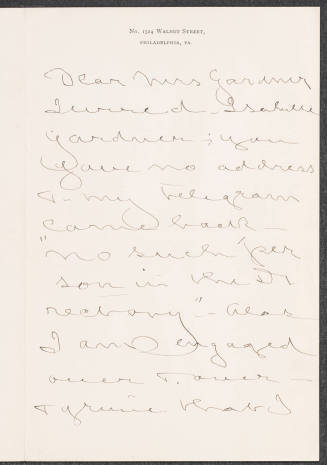 No. 1524 Walnut Street,
Philadelphia, Pa.
Dear Mrs Gardner
I wired - Isabella
Gardner; you
gave no address
& my Telegram
came back -
"no such per
son in the Di
rectory" - Alas
I am engaged
over & over -
& grieve that I